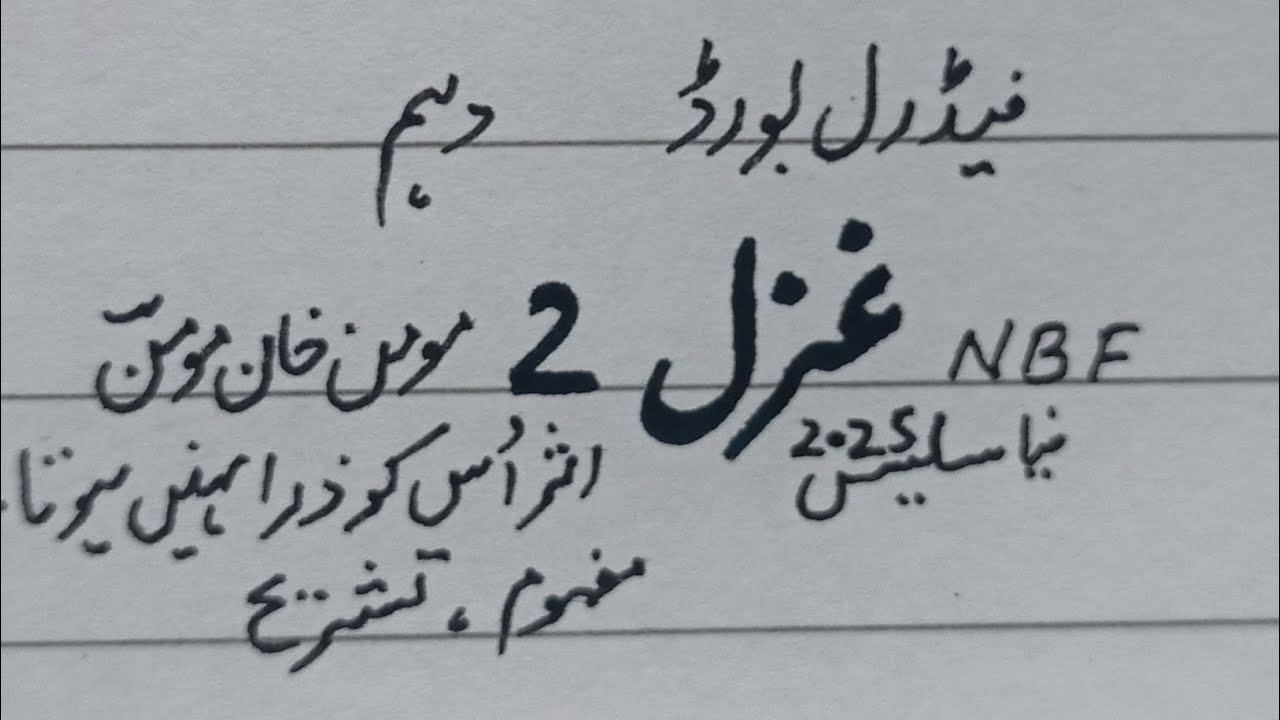 فیڈرل بورڈ دہم
NBF غزل 2 مومن خان مومنؔ
نیا سلیبس 2025
اثر اُس کو ذرا نہیں ہوتا
مفہوم، تشریح